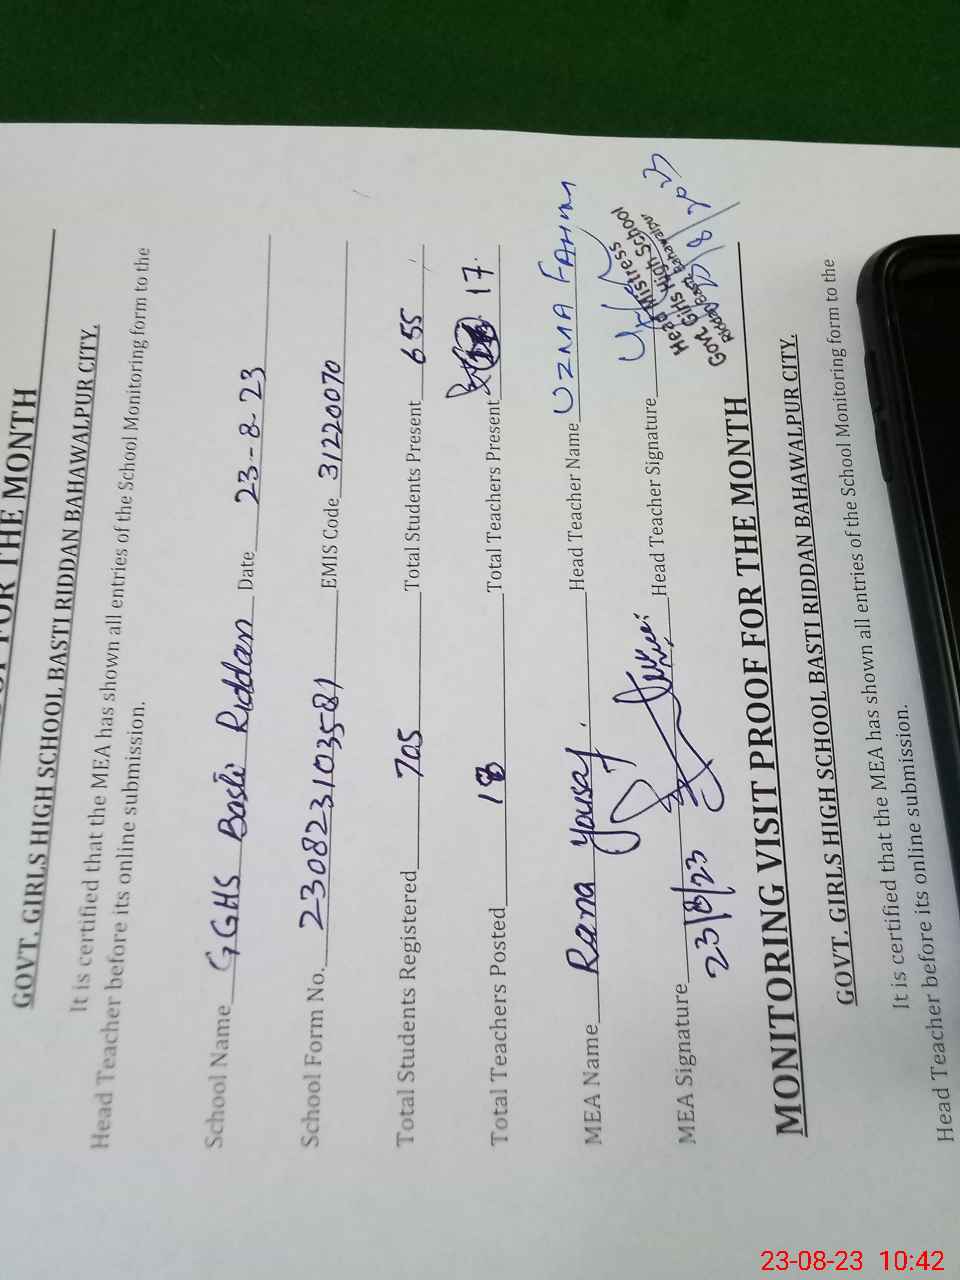 FOR THE MONTH
GOVT. GIRLS HIGH SCHOOL BASTI RIDDAN BAHAWALPUR CITY.
It is certified that the MEA has shown all entries of the School Monitoring form to the
Head Teacher before its online submission.
School Name GGHS Basti Riddan Date 23-8-23
School Form No. 230823103581 EMIS Code 31220070
Total Students Registered 705 Total Students Present 655
Total Teachers Posted 18 Total Teachers Present 17.
MEA Name Rana Yousaf. Head Teacher Name UZMA FAHIM
MEA Signature Head Teacher Signature
23/8/23
Head Mistress
Govt. Girls High School
Riddan Basti Bahawalpur
23/8/2023
MONITORING VISIT PROOF FOR THE MONTH
GOVT. GIRLS HIGH SCHOOL BASTI RIDDAN BAHAWALPUR CITY.
It is certified that the MEA has shown all entries of the School Monitoring form to the
Head Teacher before its online submission.
23-08-23 10:42